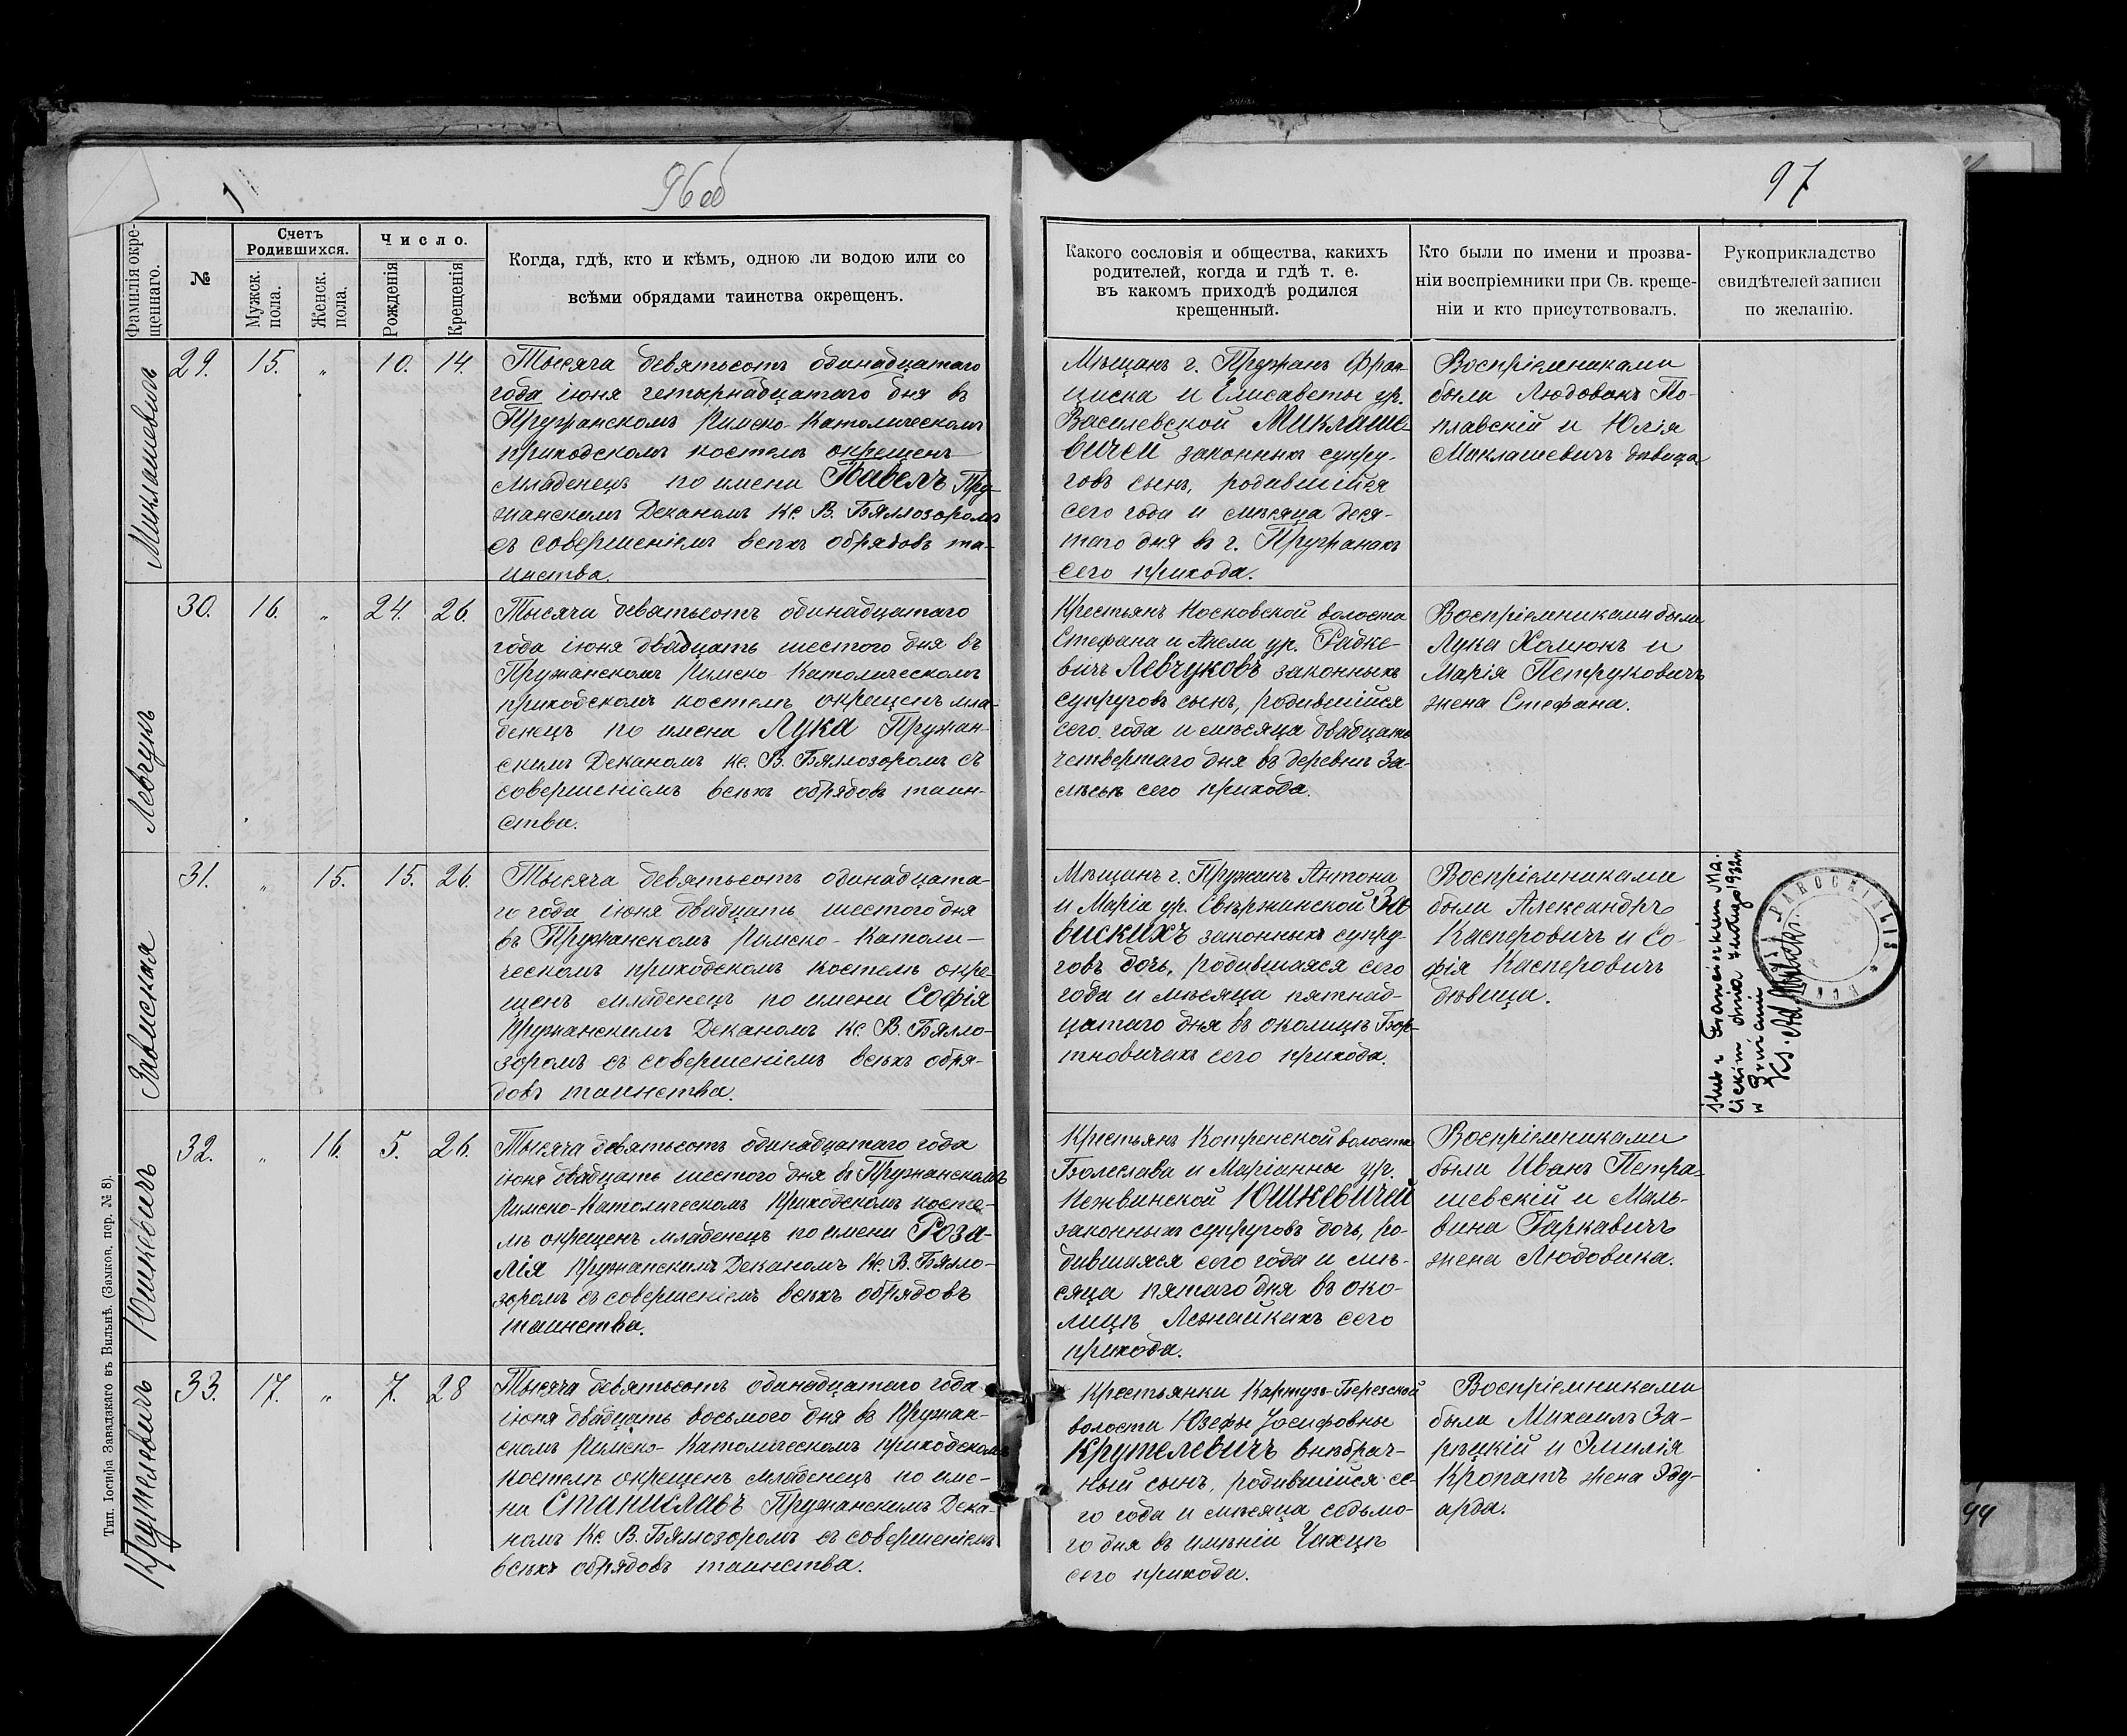 96 об
97
Фамилія окре-
щеннаго.
№
Счетъ
Родившихся.
Мужск.
пола.
Женск.
пола.
Число.
Рожденія
Крещенія
Когда, гдѣ, кто и кѣмъ, одною ли водою или со
всѣми обрядами таинства окрещенъ.
Какого сословія и общества, какихъ
родителей, когда и гдѣ т. е.
въ какомъ приходѣ родился
крещенный.
Кто были по имени и прозва-
ніи воспріемники при Св. креще-
ніи и кто присутствовалъ.
Рукоприкладство
свидѣтелей записи
по желанію.
Миклашевичъ
29. 15. „ 10. 14.
Тысяча девятьсотъ одинадцатаго
года іюня четырнадцатаго дня въ
Пружанскомъ Римско-Католическомъ
приходскомъ костелѣ окрещенъ
младенецъ по имени Павелъ Пру-
жанскимъ Деканомъ Кс. В. Бялозоромъ
съ совершеніемъ всѣхъ обрядовъ та-
инства.
Мѣщанъ г. Пружанъ Фран-
циска и Елисаветы ур.
Василевской Миклаше-
вичей законныхъ супру-
говъ сынъ, родившійся
сего года и мѣсяца деся-
таго дня въ г. Пружанахъ
сего прихода.
Воспріемниками
были Людовикъ По-
плавскій и Юлія
Миклашевичъ дѣвица
Левчукъ
30. 16. „ 24. 26.
Тысяча девятьсотъ одинадцатаго
года іюня двадцать шестого дня въ
Пружанскомъ Римско-Католическомъ
приходскомъ костелѣ окрещенъ мла-
денецъ по имени Лука Пружан-
скимъ Деканомъ Кс. В. Бялозоромъ съ
совершеніемъ всѣхъ обрядовъ таин-
ства.
Крестьянъ Носковской волости
Стефана и Анели ур. Радке-
вичъ Левчуковъ законныхъ
супруговъ сынъ, родившійся
сего года и мѣсяца двадцать
четвертаго дня въ деревнѣ За-
сего прихода.
Воспріемниками были
Лука Холюнъ и
Марія Петруковичъ
жена Стефана.
Зависская
31. „ 15. 15. 26.
Тысяча девятьсотъ одинадцата-
го года іюня двадцать шестого дня
въ Пружанскомъ Римско-Католи-
ческомъ приходскомъ костелѣ окре-
щенъ младенецъ по имени Софія
Пружанскимъ Деканомъ Кс. В. Бялло-
зоромъ съ совершеніемъ всѣхъ обря-
довъ таинства.
Мѣщанъ г. Пружанъ Антона
и Маріи ур. Свѣржинской За-
вискихъ законныхъ супру-
говъ дочь, родившаяся сего
года и мѣсяца пятнад-
цатаго дня въ околицѣ Бор-
тновичахъ сего прихода.
Воспріемниками
были Александръ
Касперовичъ и Со-
фія Касперовичъ
дѣвица.
Franciszkiem Ma-
dnia 1932 r.
w
Ks. Ad.
PAROCHIALIS
Юшкевичъ
32. „ 16. 5. 26.
Тысяча девятьсотъ одинадцатаго года
іюня двадцать шестого дня въ Пружанскомъ
Римско-Католическомъ Приходскомъ косте-
лѣ окрещенъ младенецъ по имени Роза-
лія Пружанскимъ Деканомъ Кс. В. Бялло-
зоромъ съ совершеніемъ всѣхъ обрядовъ
таинства.
Крестьянъ Котренской волости
Болеслава и Маріанны ур.
Нежвинской Юшкевичей
законныхъ супруговъ дочь, ро-
дившаяся сего года и мѣ-
сяца пятаго дня въ око-
лицѣ Лежайкахъ сего
прихода.
Воспріемниками
были Иванъ Петра-
шевскій и Маль-
вина Гаркавичъ
жена Людовика.
Крутелевичъ
33. 17. „ 7. 28
Тысяча девятьсотъ одинадцатаго года
іюня двадцать восьмого дня въ Пружан-
скомъ Римско-Католическомъ приходскомъ
костелѣ окрещенъ младенецъ по име-
ни Станиславъ Пружанскимъ Дека-
номъ Кс. В. Бяллозоромъ съ совершеніемъ
всѣхъ обрядовъ таинства.
Крестьянки Картузъ-Березской
волости Юзефы Іосифовны
Крутелевичъ внѣбрач-
ный сынъ, родившійся се-
го года и мѣсяца седьмо-
го дня въ имѣніи Чахцѣ
сего прихода.
Воспріемниками
были Михаилъ За-
рѣцкій и Эмилія
Кропатъ жена Эду-
арда.
Тип. Іосифа Завадзкаго въ Вильнѣ. (Замков. пер. № 8).
99